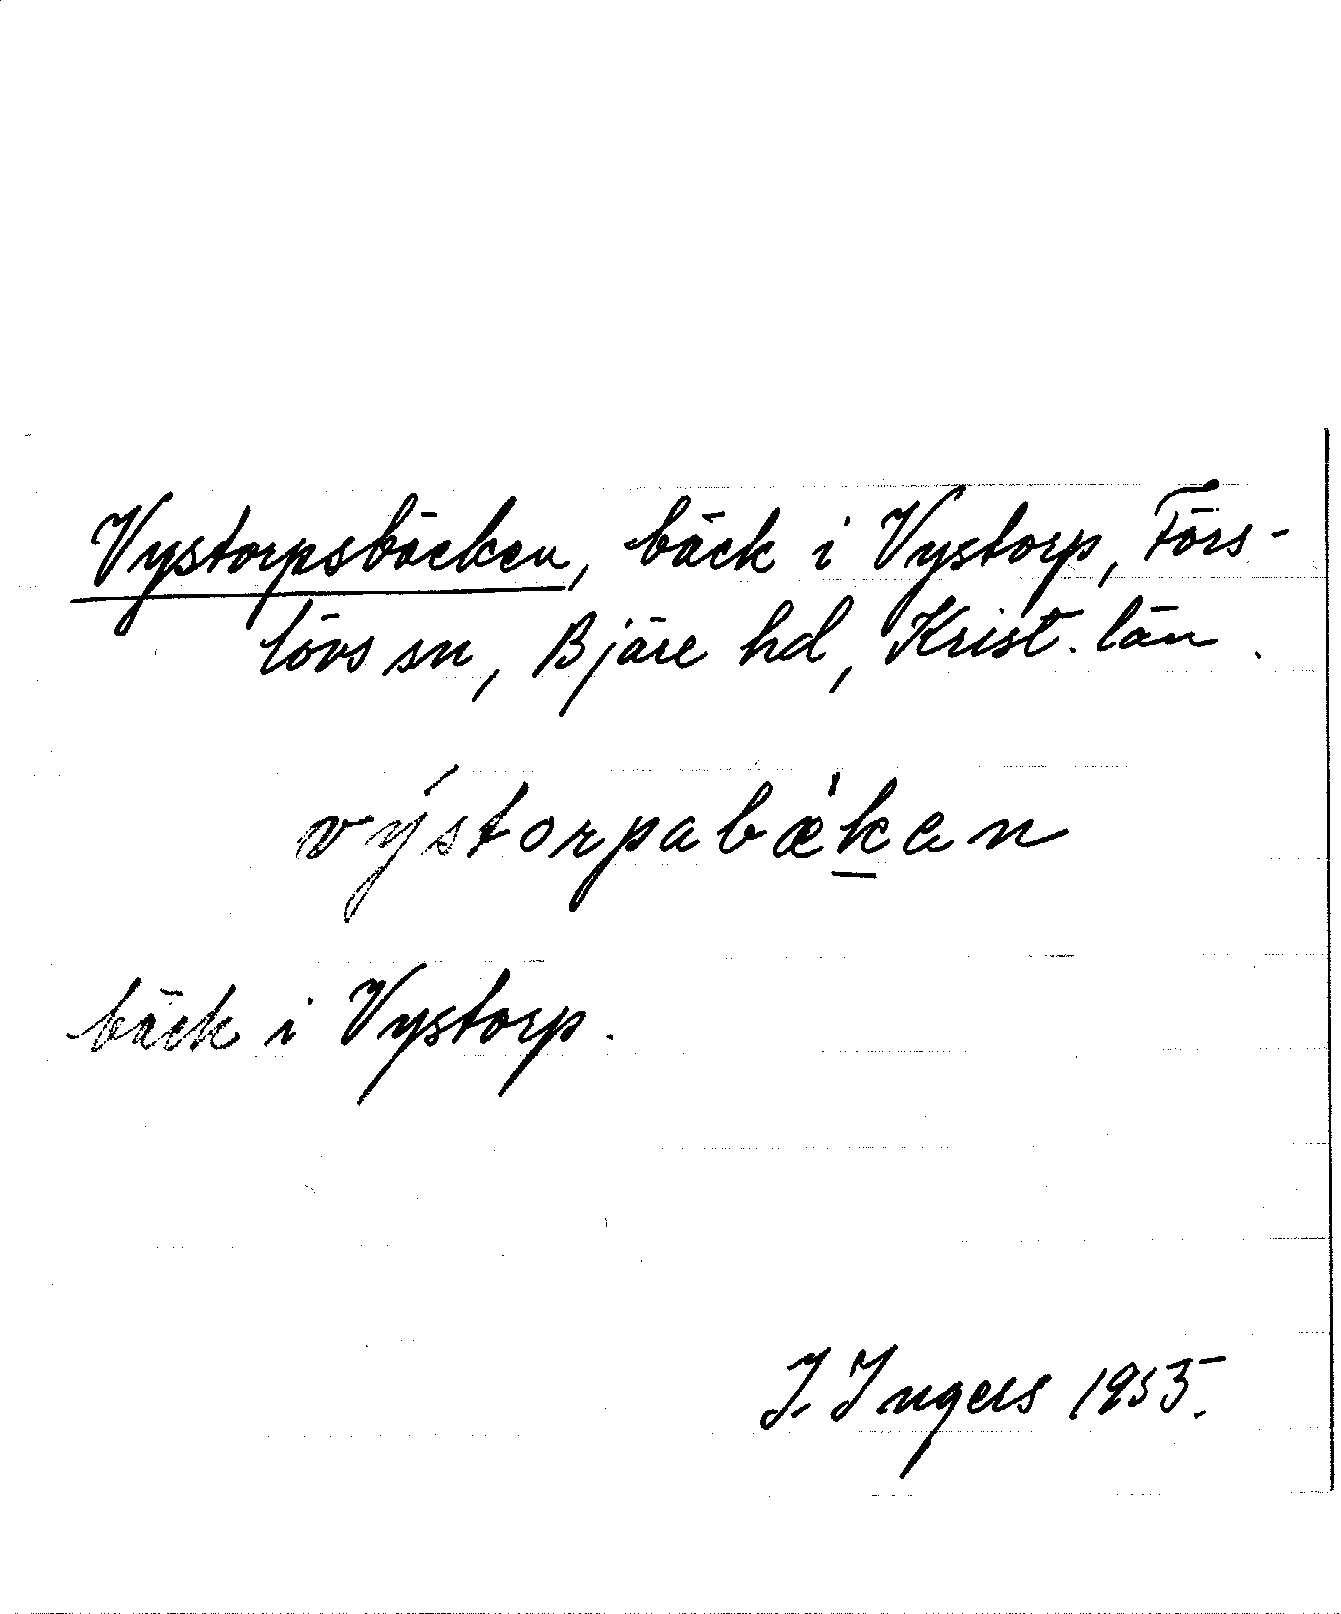 Vystorpsbäcken, bäck i Vystorp, Förs-
lövs sn, Bjäre hd, Krist. län.
výstorpabæ̀kan
bäck i Vystorp.
I. Ingers 1953.